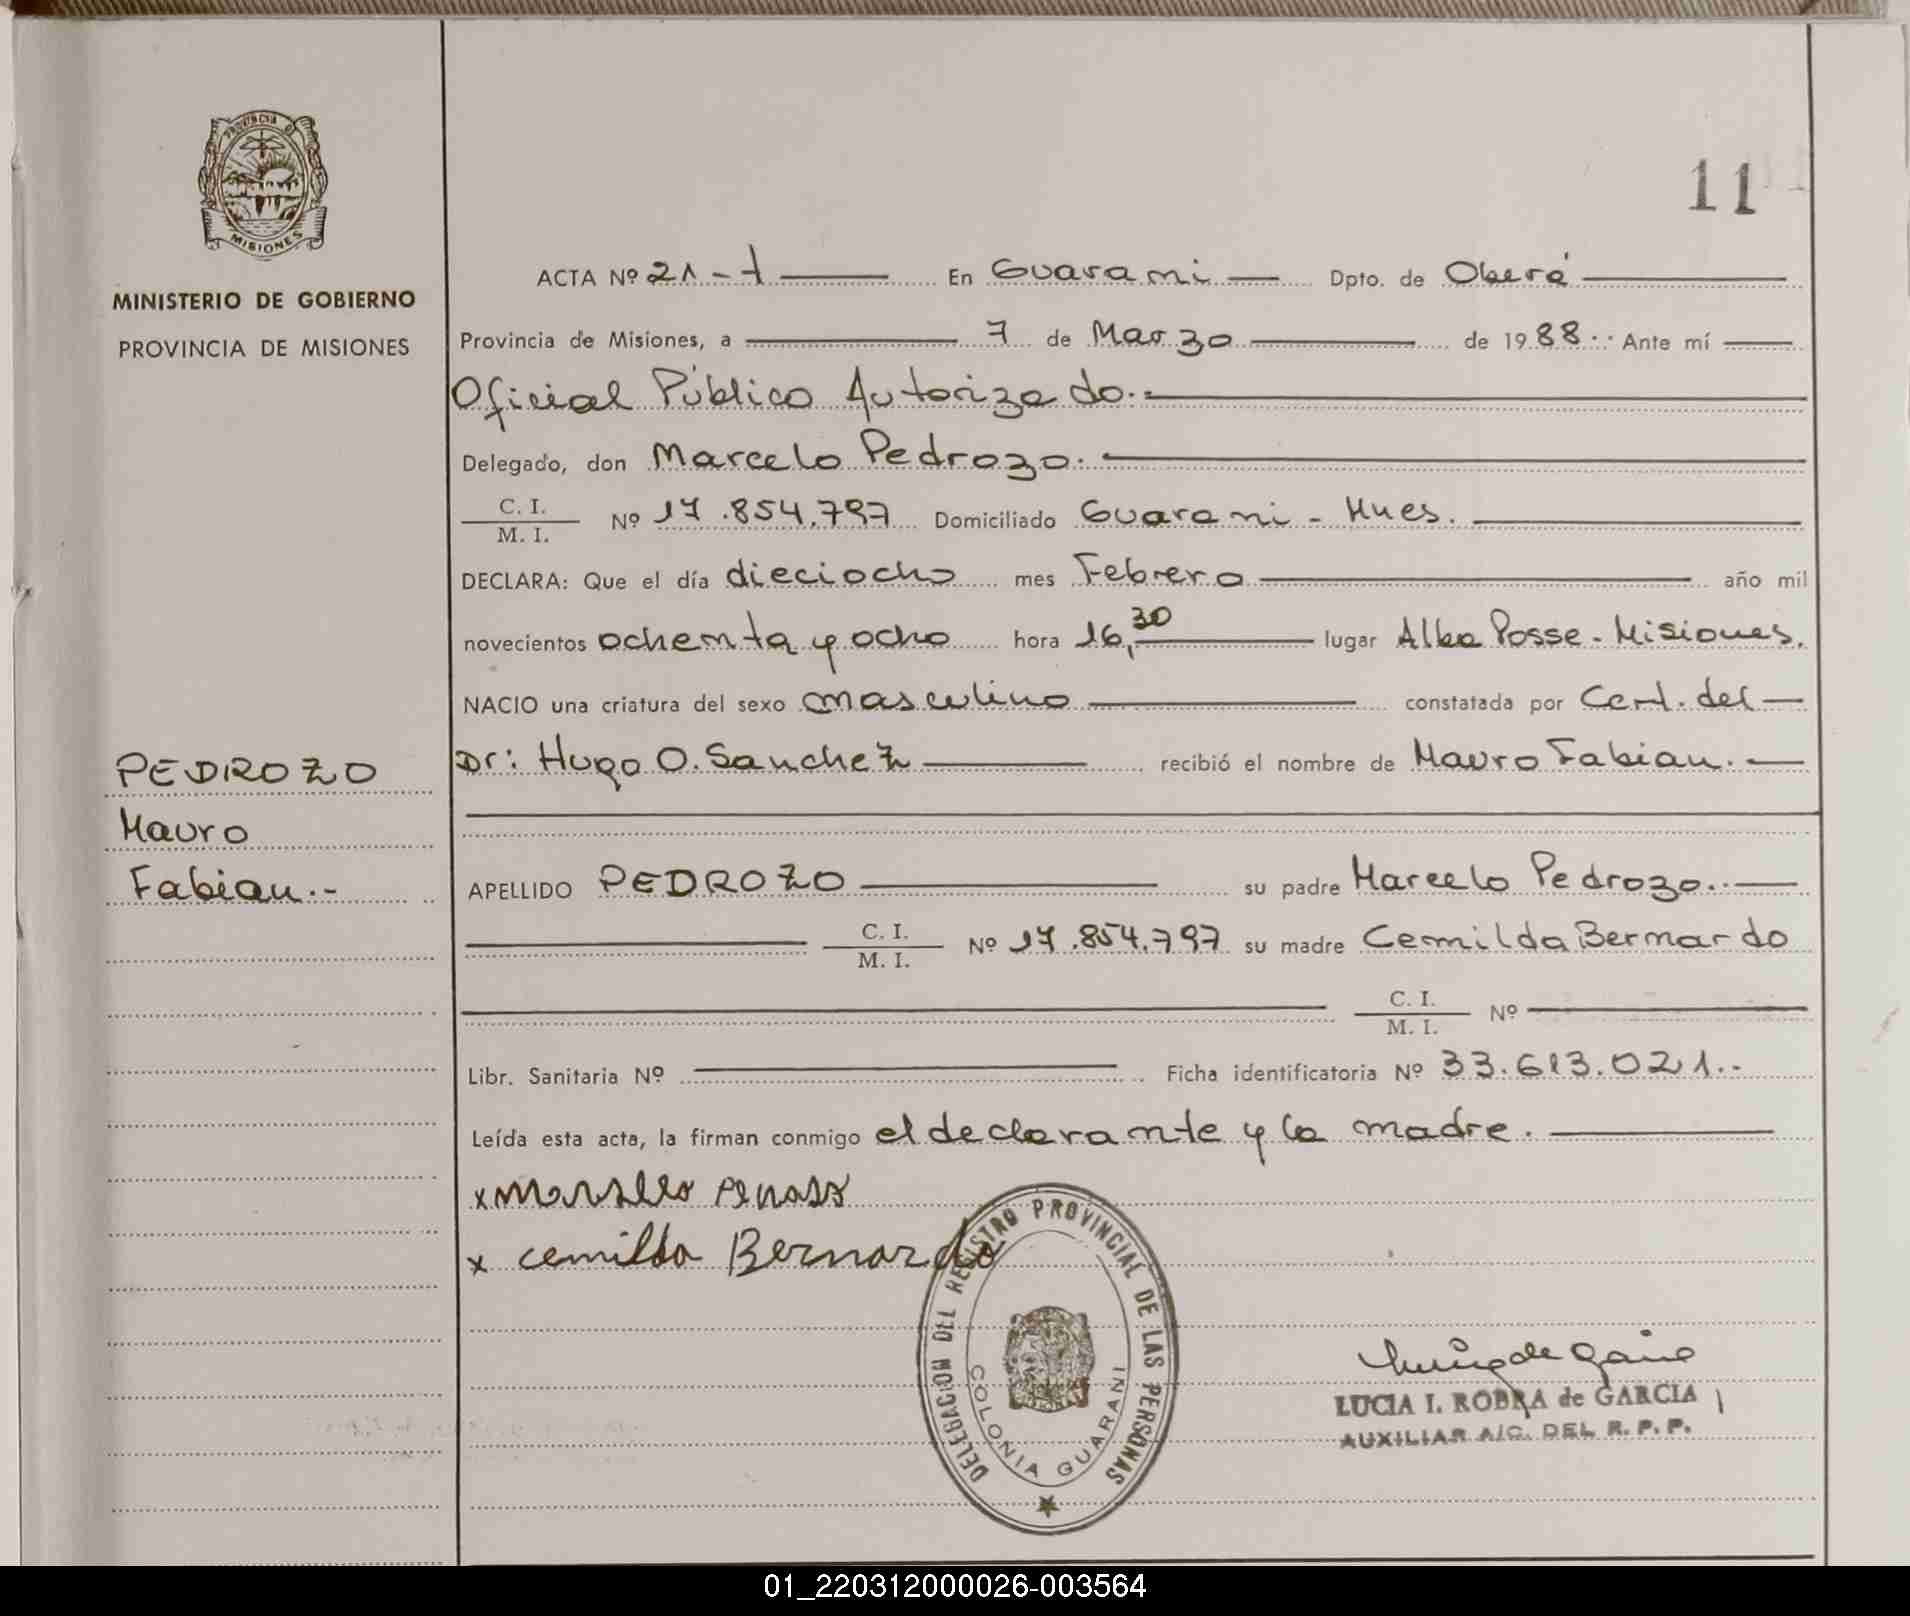 PROVINCIA DE
MISIONES
MINISTERIO DE GOBIERNO
PROVINCIA DE MISIONES
PEDROZO
Mauro
Fabian.-
11
ACTA Nº 21-1 En Guarani Dpto. de Oberá
Provincia de Misiones, a 7 de Marzo de 1988.. Ante mí
Oficial Público Autorizado.-
Delegado, don Marcelo Pedrozo.
C. I.
M. I. Nº 17.854.797 Domiciliado Guarani - Mnes.
DECLARA: Que el día dieciocho mes Febrero año mil
novecientos ochenta y ocho hora 16,30 lugar Alba Posse - Misiones.
NACIO una criatura del sexo masculino constatada por Cert. del
Dr: Hugo O. Sanchez recibió el nombre de Mauro Fabian.
APELLIDO PEDROZO su padre Marcelo Pedrozo.
C. I.
M. I. Nº 17.854.797 su madre Cemilda Bernardo
C. I.
M. I. Nº
Libr. Sanitaria Nº Ficha identificatoria Nº 33.613.021.-
Leída esta acta, la firman conmigo el declarante y la madre.
x
x cemilda Bernardo
DELEGACION DEL REGISTRO PROVINCIAL DE LAS PERSONAS
COLONIA GUARANI
LUCIA I. ROBRA de GARCIA
AUXILIAR A/C. DEL R. P. P.
01_220312000026-003564